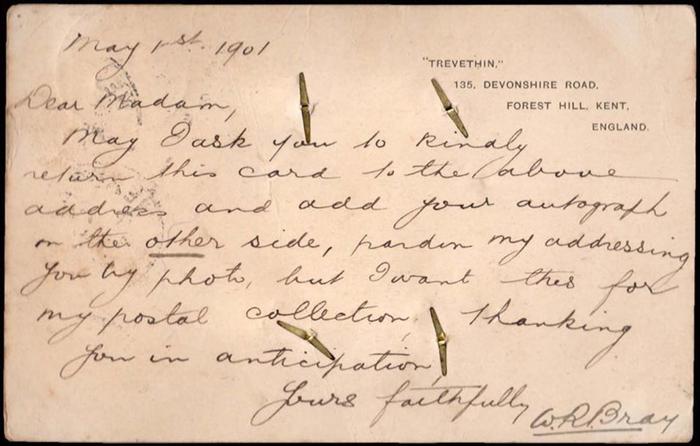 May 1st. 1901
"TREVETHIN,"
135, DEVONSHIRE ROAD,
FOREST HILL, KENT,
ENGLAND.
Dear Madam,
May I ask you to kindly
return this card to the above
address and add your autograph
on the other side, pardon my addressing
you by photo, but I want this for
my postal collection, thanking
you in anticipation,
Yours faithfully
W.R.Bray